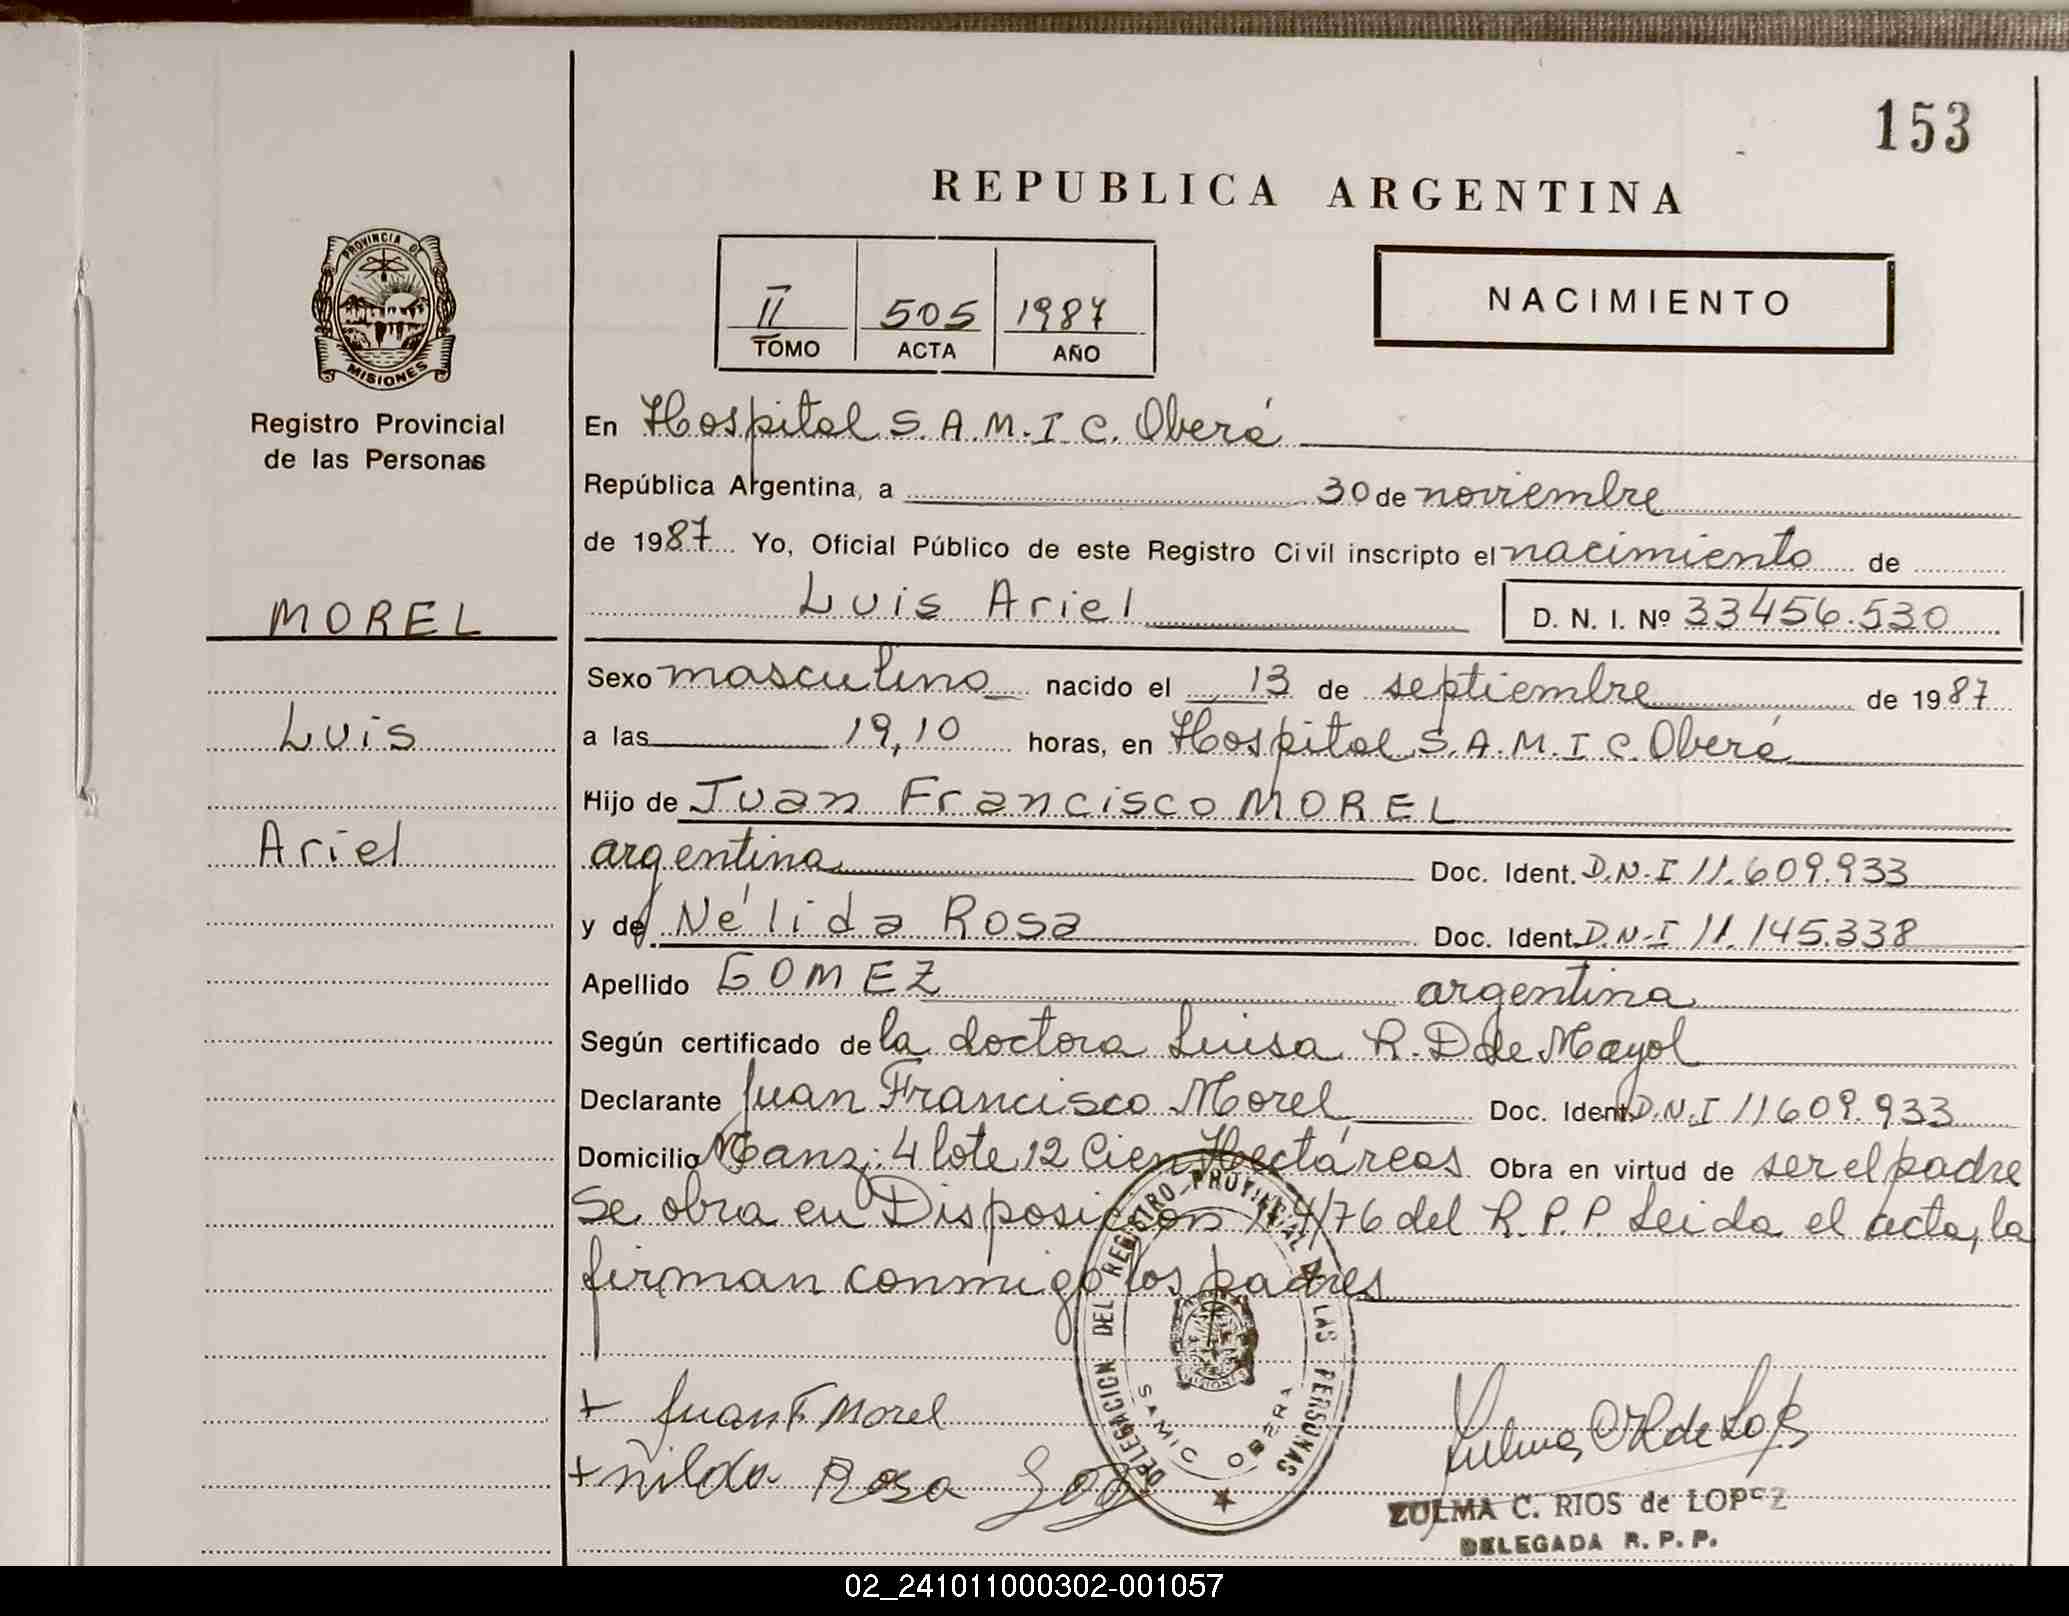 153
REPUBLICA ARGENTINA
PROVINCIA DE
MISIONES
Registro Provincial
de las Personas
II 505 1987
TOMO ACTA AÑO
NACIMIENTO
MOREL
Luis
Ariel
En Hospital S.A.M.I.C. Oberá
República Argentina, a 30 de noviembre
de 1987 Yo, Oficial Público de este Registro Civil inscripto el nacimiento de
Luis Ariel D. N. I. Nº 33456.530
Sexo masculino nacido el 13 de septiembre de 1987
a las 19,10 horas, en Hospital S.A.M.I.C. Oberá
Hijo de Juan Francisco MOREL
argentina Doc. Ident. D.N.I 11.609.933
y de Nélida Rosa Doc. Ident. D.N.I 11.145.338
Apellido GOMEZ argentina
Según certificado de la doctora Luisa R. D de Mayol
Declarante Juan Francisco Morel Doc. Ident. D.N.I 11609.933
Domicilio Manz: 4 lote 12 Cien Hectáreas Obra en virtud de ser el padre
Se obra en Disposición 14/76 del R.P.P. Leida el acta, la
firman conmigo los padres
DELEGACION DEL REGISTRO PROVINCIAL DE LAS PERSONAS
SAMIC OBERA
+ Juan F. Morel
+ Rosa
ZULMA C. RIOS de LOPEZ
DELEGADA R. P. P.
02_241011000302-001057